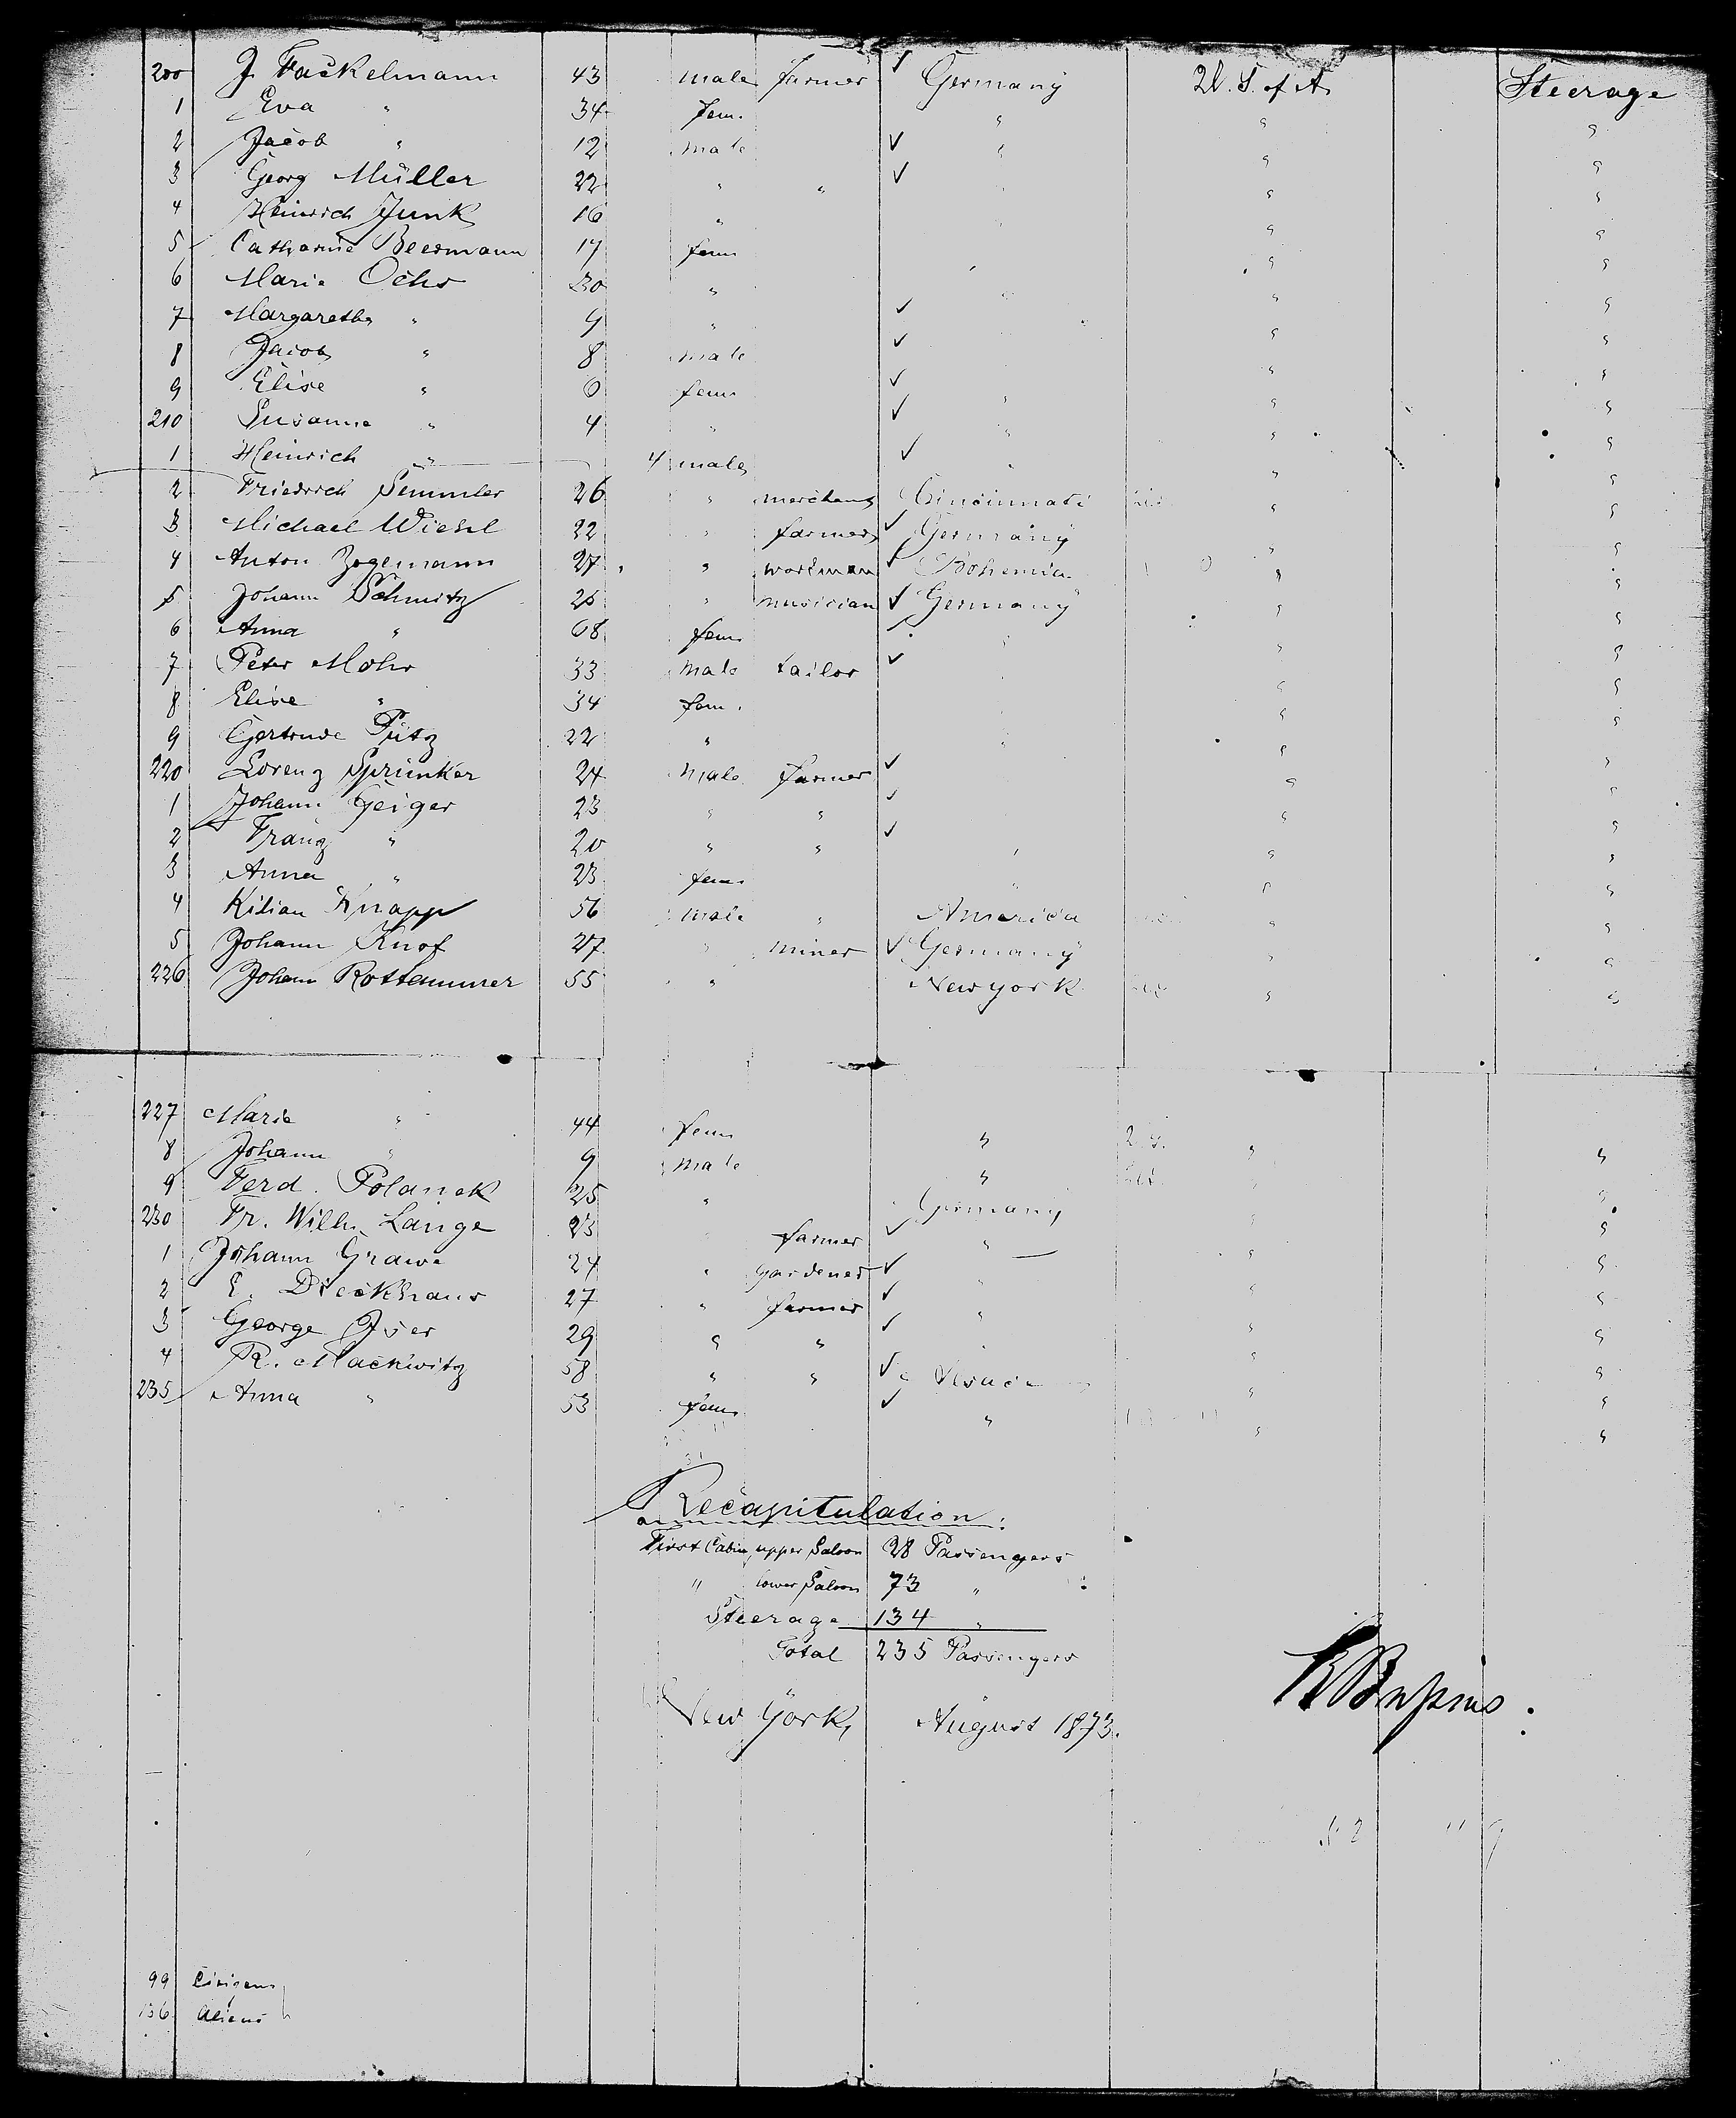 200 J Fackelmann 43 male farmer ✓ Germany U. S. of A. Steerage
1 Eva " 34 fem. " " "
2 Jacob " 12 male ✓ " " "
3 Georg Müller 22 " " ✓ " " "
4 Heinrich Junk 16 " " "
5 Catharine Beermann 17 fem " " "
6 Marie Ochs 30 " " " "
7 Margaretha " 9 " ✓ " "
8 Jacob " 8 male ✓ " "
9 Elise " 6 fem. ✓ " " "
210 Susanne " 4 " ✓ " " "
1 Heinrich " 4 male ✓ " " "
2 Friedrich Semmler 26 " merchant Cincinnati " "
3 Michael Wiehl 22 " farmer ✓ Germany " "
4 Anton Zogemann 27 " workman ✓ Bohemia " "
5 Johann Schmitz 25 " musician ✓ Germany " "
6 Anna " 68 fem. " " "
7 Peter Mohr 33 male tailor ✓ " "
8 Elise " 34 fem. " "
9 Gertrude Pütz 22 " " " "
220 Lorenz Sprünker 24 male farmer ✓ " "
1 Johann Geiger 23 " " ✓ " "
2 Franz " 20 " " ✓ " " "
3 Anna " 23 fem. " " "
4 Kilian Knapp 56 male " America " "
5 Johann Knof 27 " miner ✓ Germany " "
226 Johann Rottammer 55 " New york " "
227 Marie " 44 fem " " "
8 Johann " 9 male " " "
9 Ferd. Polanek 25 " Germany " "
230 Fr. Wilh. Lange 23 farmer ✓ " " "
1 Johann Grawe 24 " gardener ✓ " " "
2 E. Dieckhaus 27 " farmer ✓ " " "
3 George Iser 29 " " ✓ " "
4 R. Mackwitz 58 " " ✓ Alsace " "
235 Anna " 53 fem. ✓ " " "
Recapitulation:
First Cabin, upper Saloon 28 Passengers
" lower Saloon 73 "
Steerage 134 "
Total 235 Passengers
New York, August 1873.
99 Citizens
136 Aliens